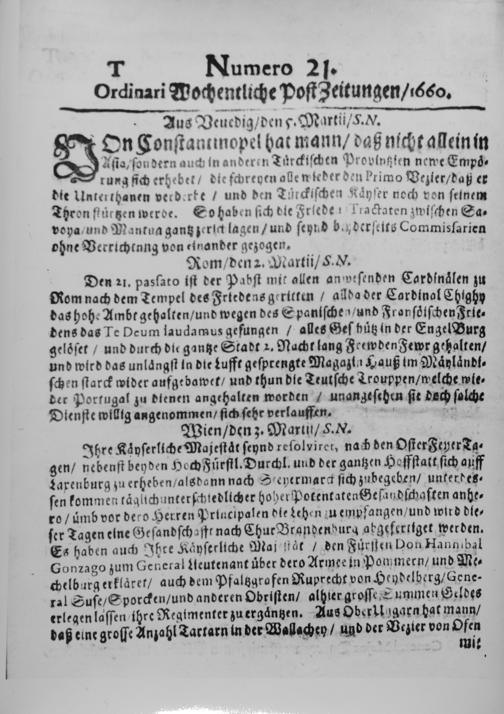 T Numero 21.
Ordinari Wochentliche PostZeitungen/1660.
Aus Venedig/den 5. Martii/S.N.
VOn Constantinopel hat mann/daß nicht allein in
Asia/sondern auch in anderen Türckischen Provintzien newe Empö-
rung sich erhebet/ die schreyen alle wieder den Primo Vezier/daß er
die Unterthanen verderbe / und den Türckischen Käyser noch von seinem
Thron stürtzen werde. So haben sich die Friedens Tractaten zwischen Sa-
voya/und Mantua gantz zerschlagen/ und seynd beyderseits Commissarien
ohne Verrichtung von einander gezogen.
Rom/den 2. Martii/S.N.
Den 21. passato ist der Pabst mit allen anwesenden Cardinälen zu
Rom nach dem Tempel des Friedens geritten / allda der Cardinal Chighy
das hohe Ambt gehalten/und wegen des Spanischen/und Fransösischen Frie-
dens das Te Deum laudamus gesungen / alles Geschütz in der EngelBurg
gelöset / und durch die gantze Stadt 2. Nacht lang FrewdenFewr gehalten/
und wird das unlängst in die Lufft gesprengte Magazin Hauß im Mäyländi-
schen starck wider aufgebawet/ und thun die Teutsche Trouppen/welche wie-
der Portugal zu dienen angehalten worden / unangesehen sie doch solche
Dienste willig angenommen/ sich sehr verlauffen.
Wien/den 3. Martii/S.N.
Ihre Käyserliche Majestät seynd resolviret, nach den OsterFeyer Ta-
gen/ nebenst beyden HochFürstl. Durchl. und der gantzen Hoffstatt sich auff
Laxenburg zu erheben/alsdann nach Steyermarck sich zubegeben/ unterdes-
sen kommen täglich unterschiedlicher hoher Potentaten Gesandschaften anhe-
ro/ ümb vor dero Herren Principalen die Lehen zu empfangen/und wird die-
ser Tagen eine Gesandschafft nach Chur Brandenburg abgefertiget werden.
Es haben auch Ihre Käyserliche Majestät / den Fürsten Don Hannibal
Gonzago zum General Lieutenant über dero Armee in Pommern/ und Me-
chelburg erkläret/ auch dem Pfaltzgrafen Ruprecht von Heydelberg/Gene-
ral Suse/Sporcken/und anderen Obristen/ alhier grosse Summen Geldes
erlegen lassen/ihre Regimenter zu ergäntzen. Aus OberUngarn hat mann/
daß eine grosse Anzahl Tartarn in der Wallachey/ und der Vezier von Ofen
mit